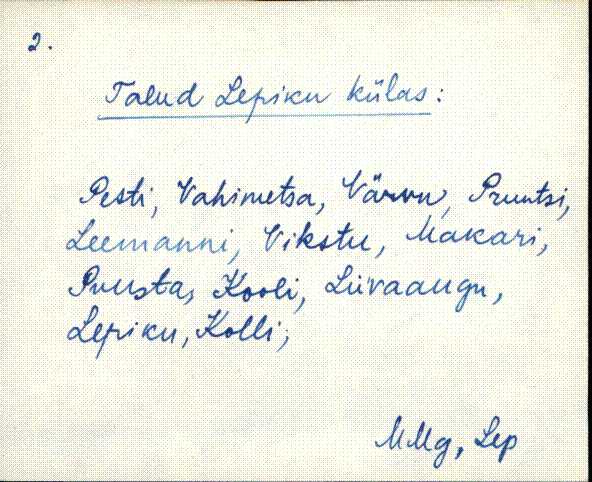 2.
Talud Lepiku külas:
Pesti, Vahimetsa, Värvu, Pruntsi,
Leemanni, Vikstu, Makari,
Puusta, Kooli, Liivaaugu,
Lepiku, Kolli,
MMg, Lep